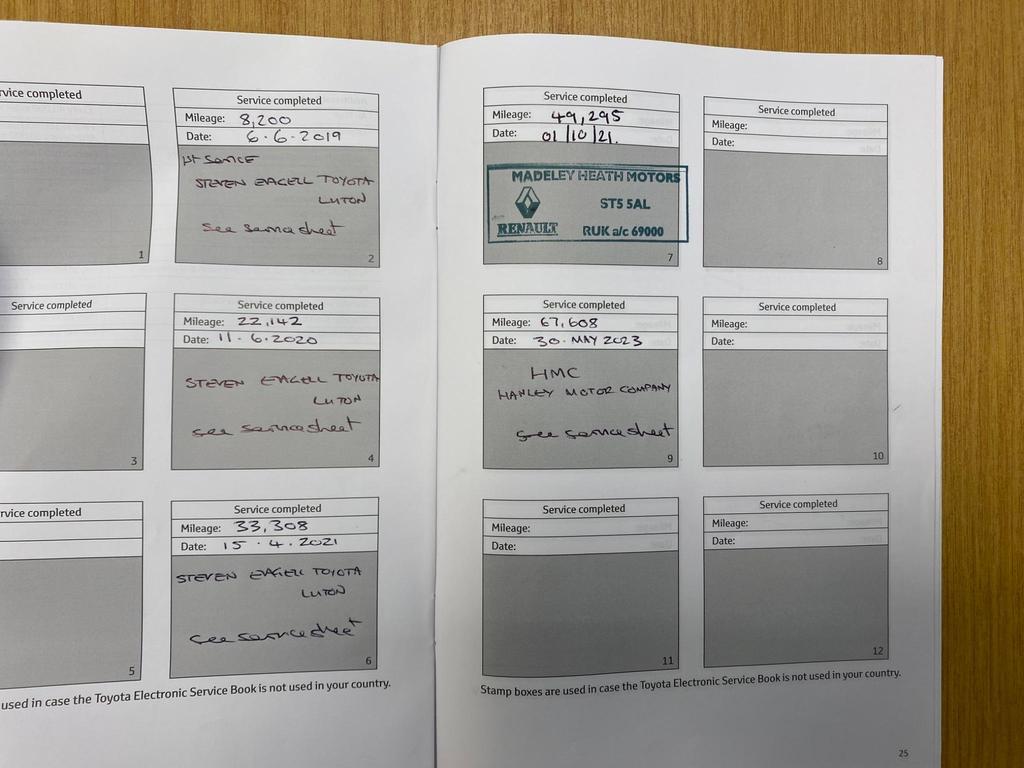 rvice completed
1
Service completed
Mileage: 8,200
Date: 6.6.2019
1st Service
STEVEN EAGELL TOYOTA
LUTON
See service sheet
2
Service completed
3
Service completed
Mileage: 22,142
Date: 11.6.2020
STEVEN EAGELL TOYOTA
LUTON
See service sheet
4
rvice completed
5
Service completed
Mileage: 33,308
Date: 15.4.2021
STEVEN EAGELL TOYOTA
LUTON
See service sheet
6
used in case the Toyota Electronic Service Book is not used in your country.
Service completed
Mileage: 49,295
Date: 01/10/21.
MADELEY HEATH MOTORS
ST5 5AL
RENAULT RUK a/c 69000
7
Service completed
Mileage:
Date:
8
Service completed
Mileage: 67,608
Date: 30.MAY 2023
HMC
HANLEY MOTOR COMPANY
See service sheet
9
Service completed
Mileage:
Date:
10
Service completed
Mileage:
Date:
11
Service completed
Mileage:
Date:
12
Stamp boxes are used in case the Toyota Electronic Service Book is not used in your country.
25